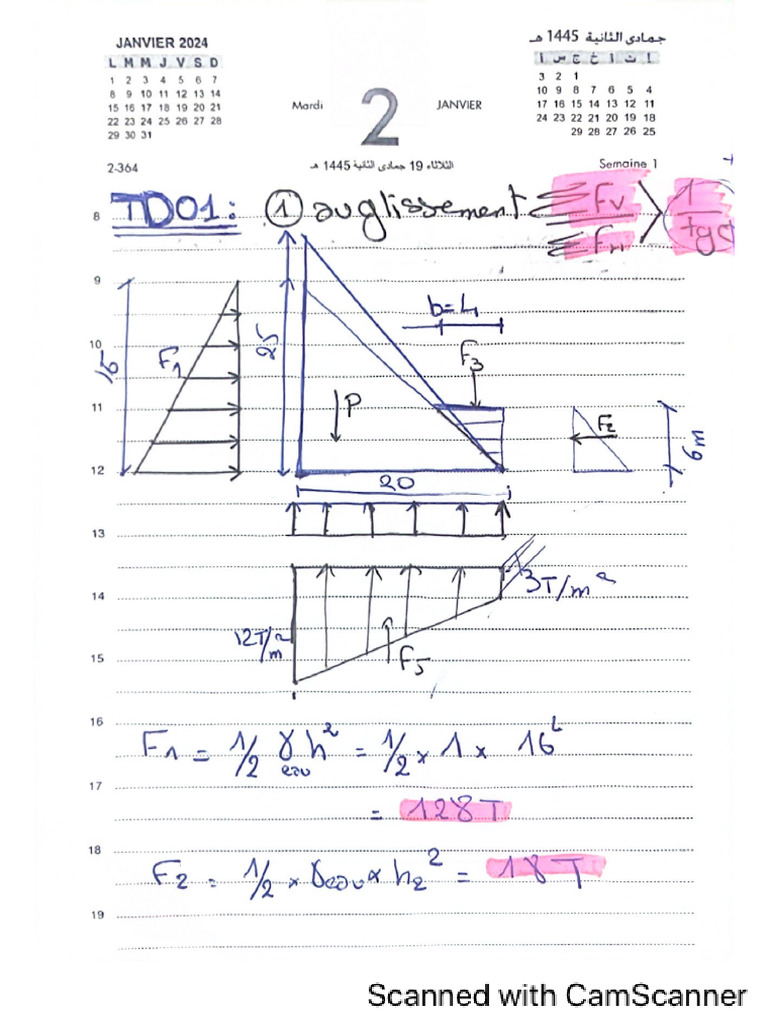 JANVIER 2024
L M M J V S D
1 2 3 4 5 6 7
8 9 10 11 12 13 14
15 16 17 18 19 20 21
22 23 24 25 26 27 28
29 30 31
Mardi
2
JANVIER
جمادى الثانية 1445 هـ
ا س ج خ أ ث ا
3 2 1
10 9 8 7 6 5 4
17 16 15 14 13 12 11
24 23 22 21 20 19 18
29 28 27 26 25
2-364
الثلاثاء 19 جمادى الثانية 1445 هـ
Semaine 1
8
TD01: ① au glissement Fv / FH > 1 / tg
9
b=4
10
16
F1
25
F3
11
P
F2
6m
12
20
13
3T/m²
14
12T/m²
15
F5
16
F1 = 1/2 γeau h² = 1/2 × 1 × 16²
17
= 128 T
18
F2 = 1/2 × γeau × h2² = 18 T
19
Scanned with CamScanner